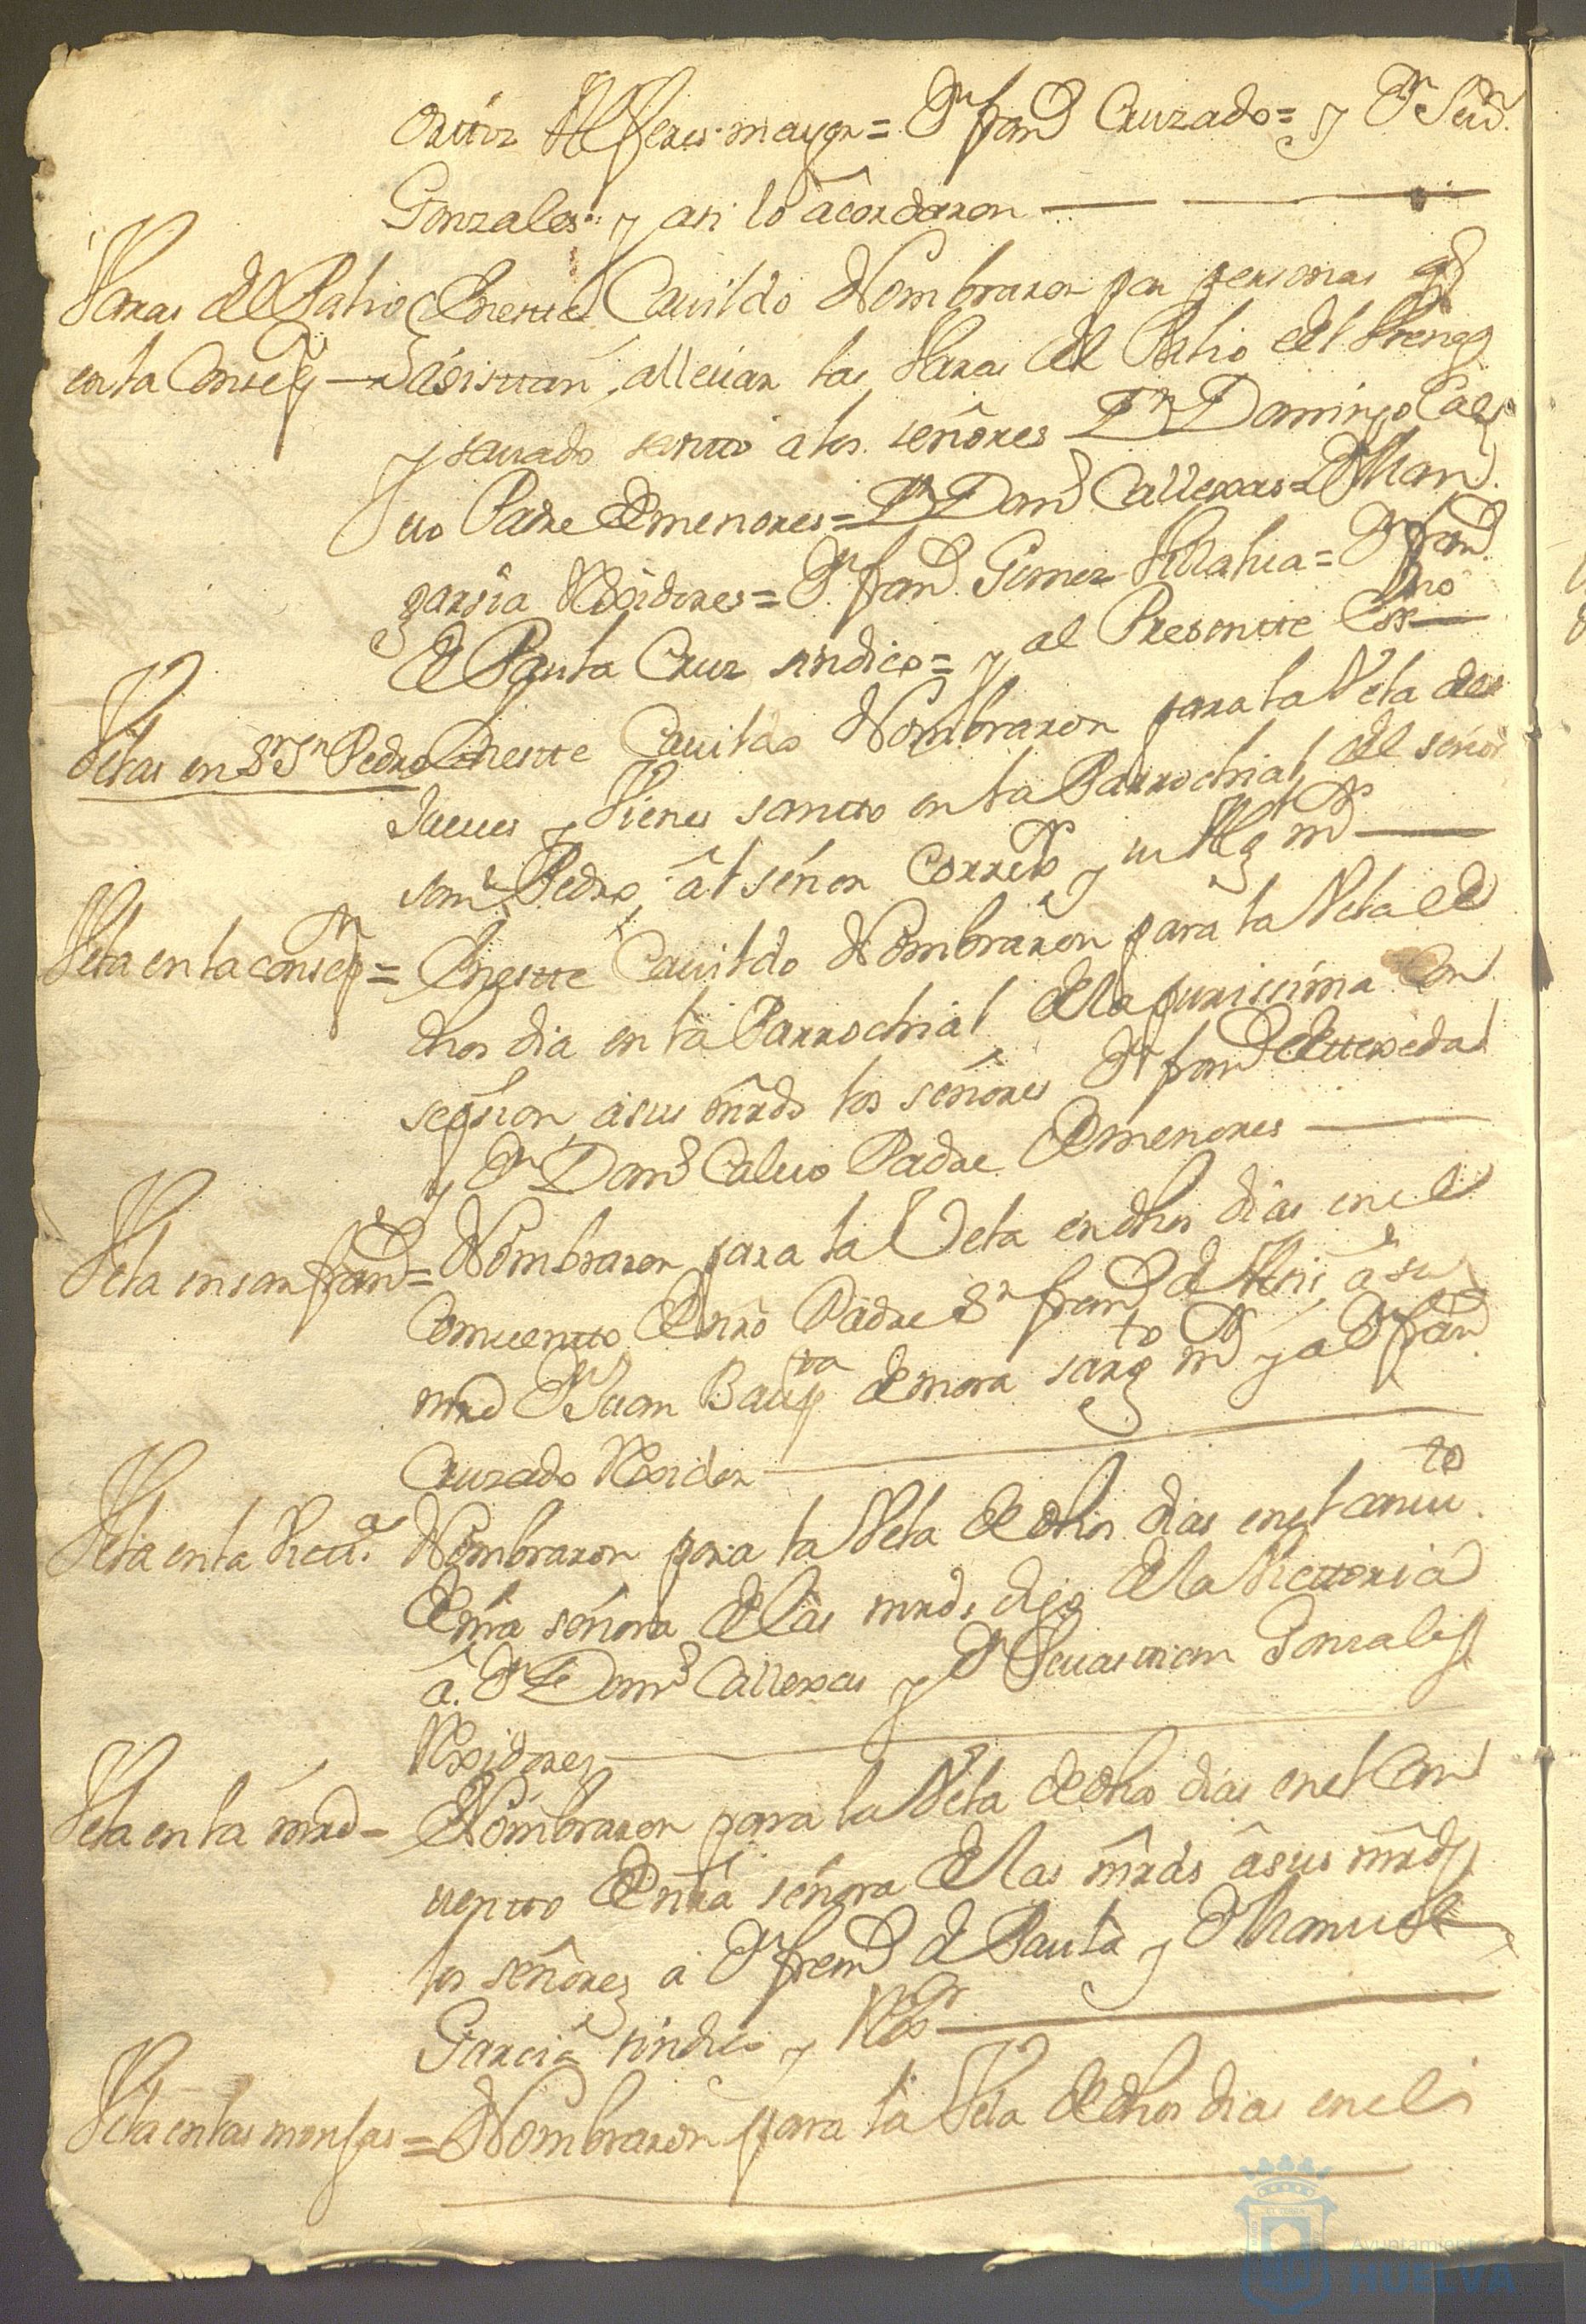 Orttiz Alferes mayor = Dn franco Cruzado = y Dn Seun
Gonzales y asi lo acordaron
Varas del Palio En estte Cauildo Nombraron por personas qe
en la Consepn asistan alleuar las Varas del Palio el Viernes
y sauado santto a los señores Dn Domingo Cal
uo Padre de menores = Dn Domo Callexas = Dn Man
garsia Rexidores = Dn franco Gomez = Dn franco
de Pauta Cruz sindico = y al Presentte Essno
Velas en Sr Sn Pedro En estte Cauildo Nombraron para la Vela del
Jueues y Viernes santto en la Parrochial del señor
san Pedro, al señor Correxor y su Alg mor
Vela en la consepn = En estte Cauildo Nombraron para la Vela de
dhos dia en la Parrochial de la purissima Con
sepsion, a sus mrds los señores Dn franco de ttexeda
y Dn Domo Caluo Padre de menores
Vela en san franco = Nombraron para la Vela en dhos dias en el
Comuentto de nro Padre Sn franco de Asis, a su
mrd Dn Juan Bauptta de mora sargto mor y a Dn franco
Cruzado Rexidor
Vela en la Victta Nombraron para la Vela de dhos dias en el conuto
de nra señora de las mrds digo de la Victtoria
a Dn Domo Callexas y Dn Seuasttian Gonzales
Rexidores
Vela en la mrd = Nombraron para la Vela de dhos dias en el Con
uentto de nra señora de las mrds a sus mrds
los señores a Dn franco de Pauta y Dn Manuel
Garcia sindico y Rexor
Vela en las monjas = Nombraron para la Vela de dhos dias en el
Ayuntamiento
HUELVA